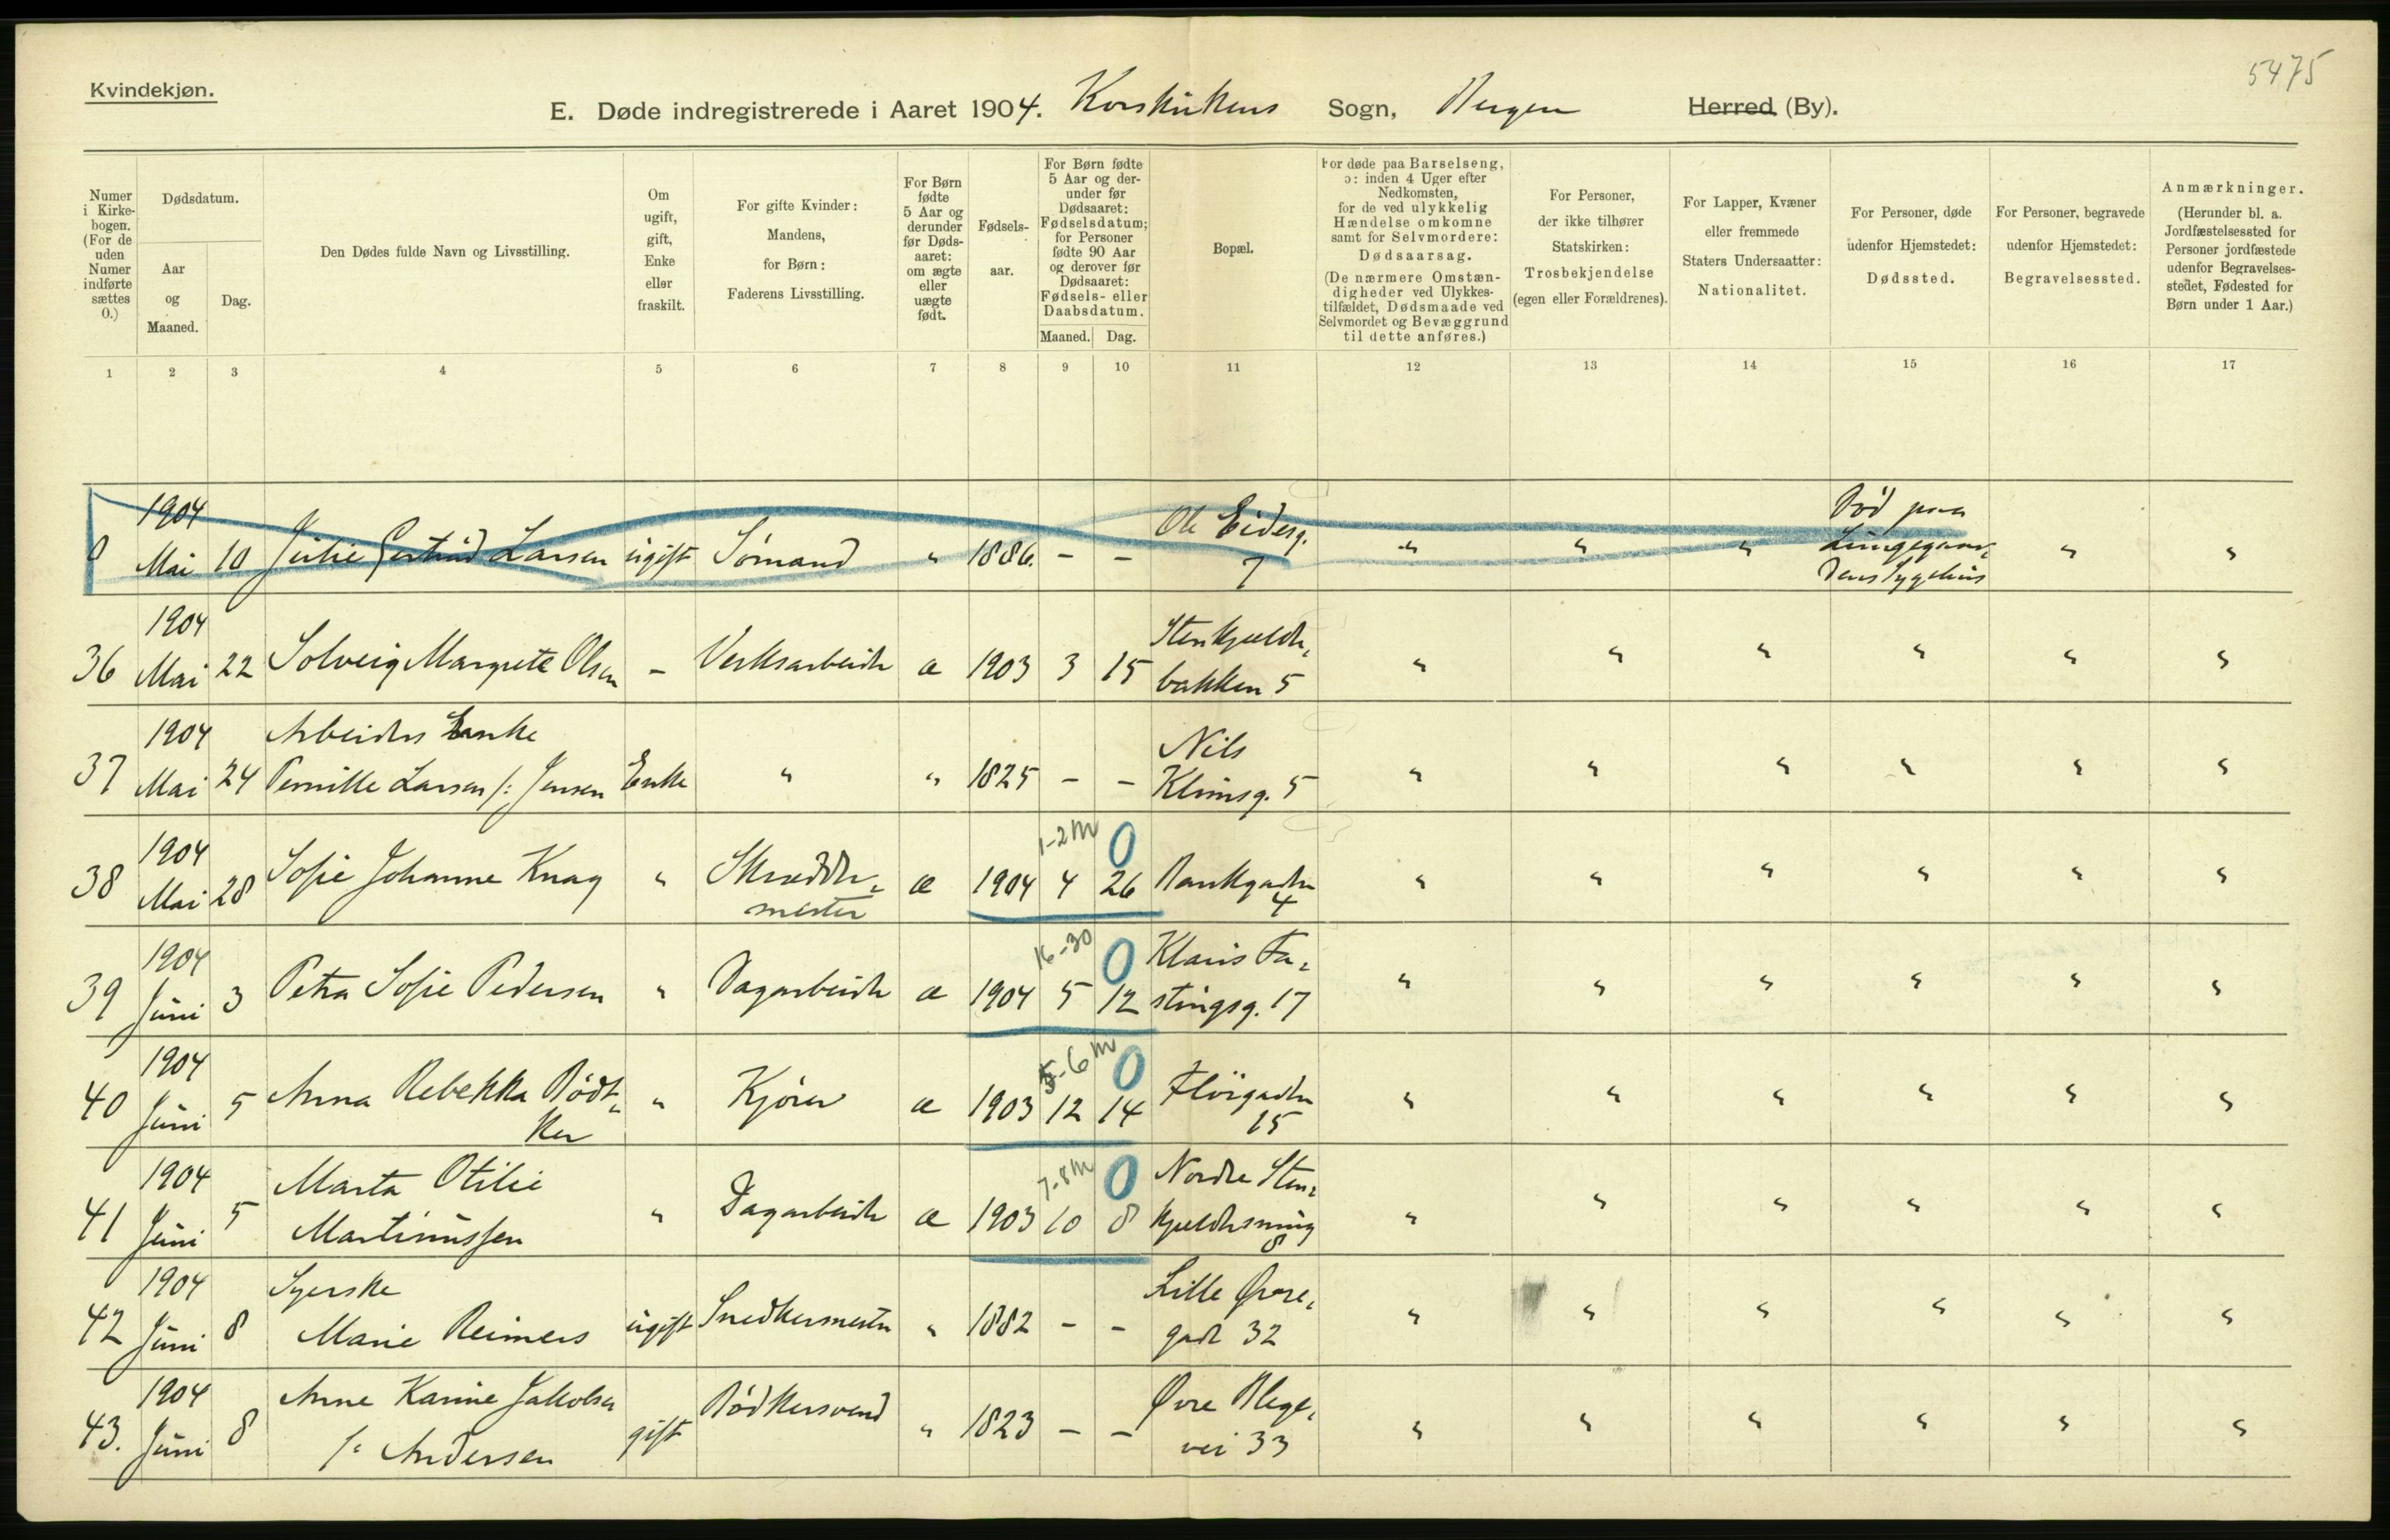 5475
Kvindekjøn.
E. Døde indregistrerede i Aaret 1904. Korskirkens Sogn, Bergen Herred (By).
Numer i Kirkebogen. (For de uden Numer indførte sættes 0.)
Dødsdatum.
Aar og Maaned.
Dag.
Den Dødes fulde Navn og Livsstilling.
Om ugift, gift, Enke eller fraskilt.
For gifte Kvinder: Mandens, for Børn: Faderens Livsstilling.
For Børn fødte 5 Aar og derunder før Dødsaaret: om ægte eller uægte født.
Fødselsaar.
For Børn fødte 5 Aar og derunder før Dødsaaret: Fødselsdatum; for Personer fødte 90 Aar og derover før Dødsaaret: Fødsels- eller Daabsdatum.
Maaned. Dag.
Bopæl.
For døde paa Barselseng, ɔ: inden 4 Uger efter Nedkomsten, for de ved ulykkelig Hændelse omkomne samt for Selvmordere: Dødsaarsag. (De nærmere Omstændigheder ved Ulykkestilfældet, Dødsmaade ved Selvmordet og Bevæggrund til dette anføres.)
For Personer, der ikke tilhører Statskirken: Trosbekjendelse (egen eller Forældrenes).
For Lapper, Kvæner eller fremmede Staters Undersaatter: Nationalitet.
For Personer, døde udenfor Hjemstedet: Dødssted.
For Personer, begravede udenfor Hjemstedet: Begravelsessted.
Anmærkninger. (Herunder bl. a. Jordfæstelsessted for Personer jordfæstede udenfor Begravelsesstedet, Fødested for Børn under 1 Aar.)
1 2 3 4 5 6 7 8 9 10 11 12 13 14 15 16 17
0 1904 Mai 10 Julie Gertrud Larsen ugift Sømand " 1886. - - Ole Eidesg. 7 " " " Død paa Lungegaardens Sygehus " "
36 1904 Mai 22 Solveig Margrete Olsen - Verksarbeider æ 1903 3 15 Stenkjelderbakken 5 " " " " " "
37 1904 Mai 24 Arbeiders Enke Pernille Larsen f: Jensen Enke " " 1825 - - Nils Klimsg. 5 " " " " " "
38 1904 Mai 28 Sofie Johanne Knag " Skræddermester æ 1904 4 26 1-2 m 0 Bankgaden 4 " " " " " "
39 1904 Juni 3 Petra Sofie Pedersen " Dagarbeider æ 1904 5 12 16-30 0 Klaus Fastingsg. 17 " " " " " "
40 1904 Juni 5 Anna Rebekka Bødtker " Kjører æ 1903 12 14 5-6 m 0 Fløigaden 15 " " " " " "
41 1904 Juni 5 Marta Otilie Martinussen " Dagarbeider æ 1903 10 8 7-8 m 0 Nordre Stenkjeldersmug 8 " " " " " "
42 1904 Juni 8 Syerske Marie Reimers ugift Snedkermester " 1882 - - Lille Øvregade 32 " " " " " "
43. 1904 Juni 8 Anne Karine Jakobsen f: Andersen gift Bødkersvend " 1823 - - Øvre Blegevei 33 " " " " " "